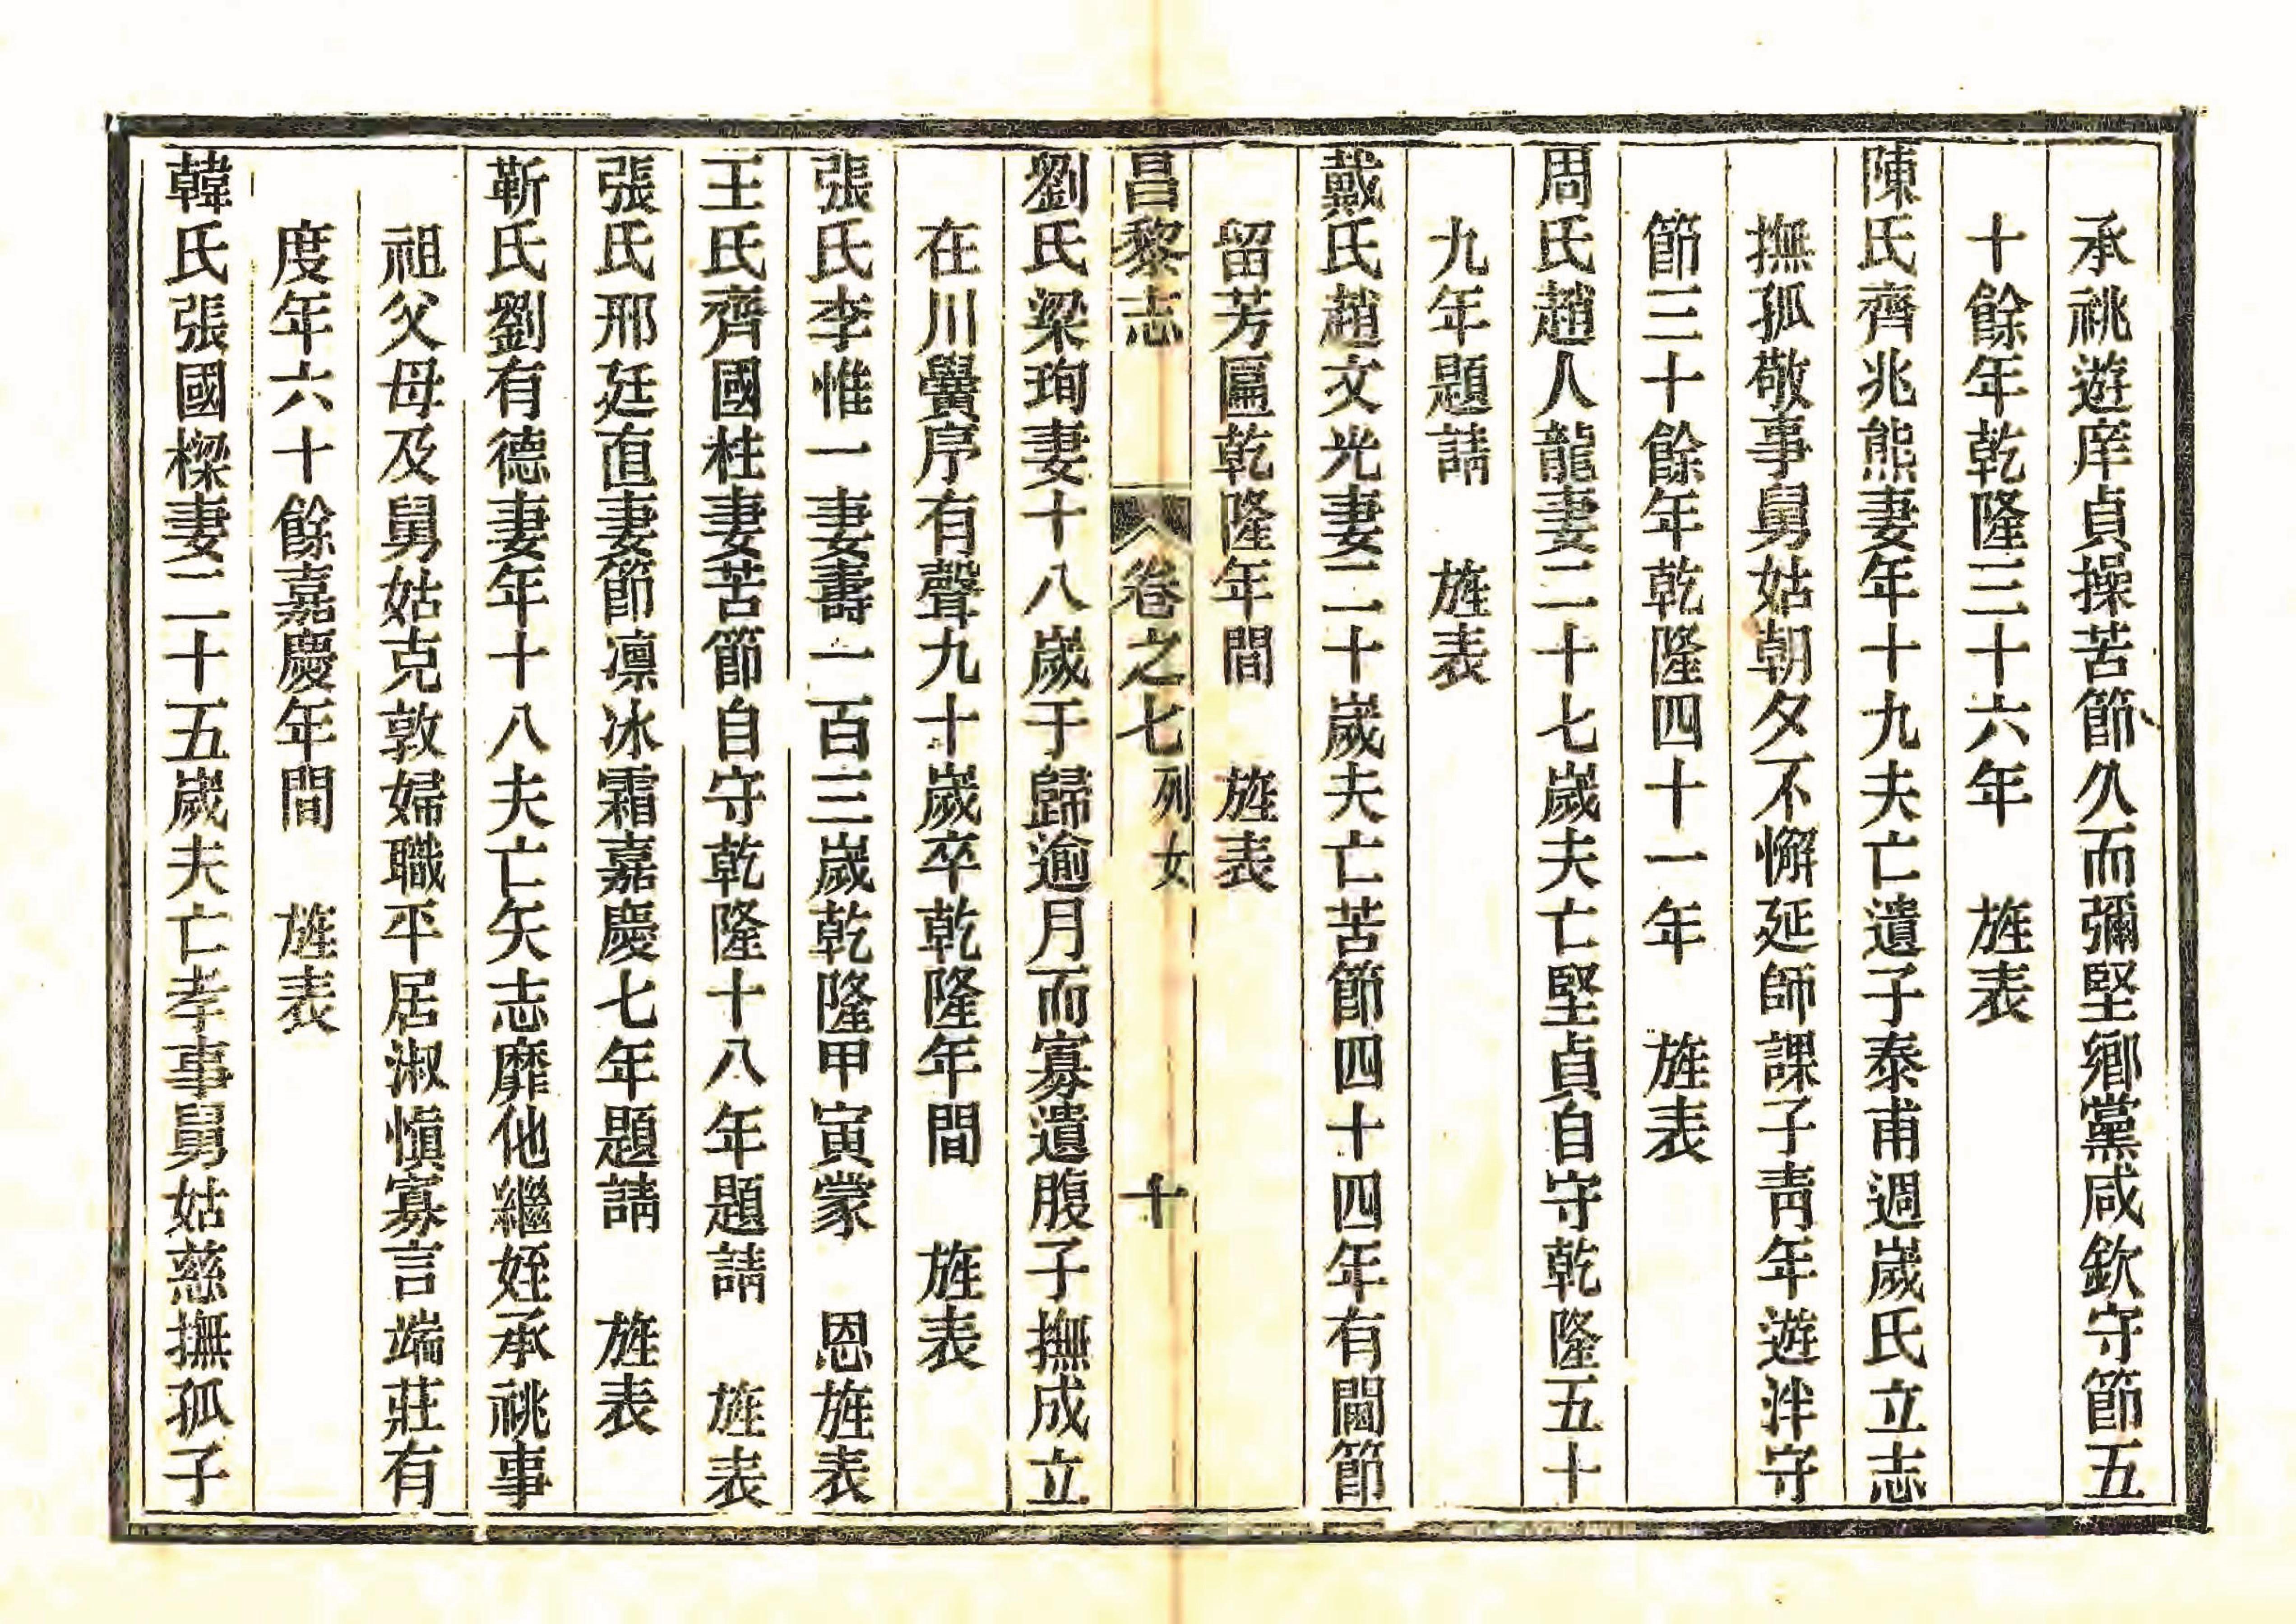 承祧遊庠貞操苦節久而彌堅鄉黨咸欽守節五
十餘年乾隆三十六年　旌表
陳氏齊兆熊妻年十九夫亡遺子泰甫週歲氏立志
撫孤敬事舅姑朝夕不懈延師課子青年遊泮守
節三十餘年乾隆四十一年　旌表
周氏趙人龍妻二十七歲夫亡堅貞自守乾隆五十
九年題請　旌表
戴氏趙文光妻二十歲夫亡苦節四十四年有閫節
留芳匾乾隆年間　旌表
昌黎志　卷之七列女　十
劉氏梁珣妻十八歲于歸逾月而寡遺腹子撫成立
在川黌序有聲九十歲卒乾隆年間　旌表
張氏李惟一妻壽一百三歲乾隆甲寅蒙　恩旌表
王氏齊國柱妻苦節自守乾隆十八年題請　旌表
張氏邢廷直妻節凜冰霜嘉慶七年題請　旌表
靳氏劉有德妻年十八夫亡矢志靡他繼姪承祧事
祖父母及舅姑克敦婦職平居淑慎寡言端莊有
度年六十餘嘉慶年間　旌表
韓氏張國樑妻二十五歲夫亡孝事舅姑慈撫孤子